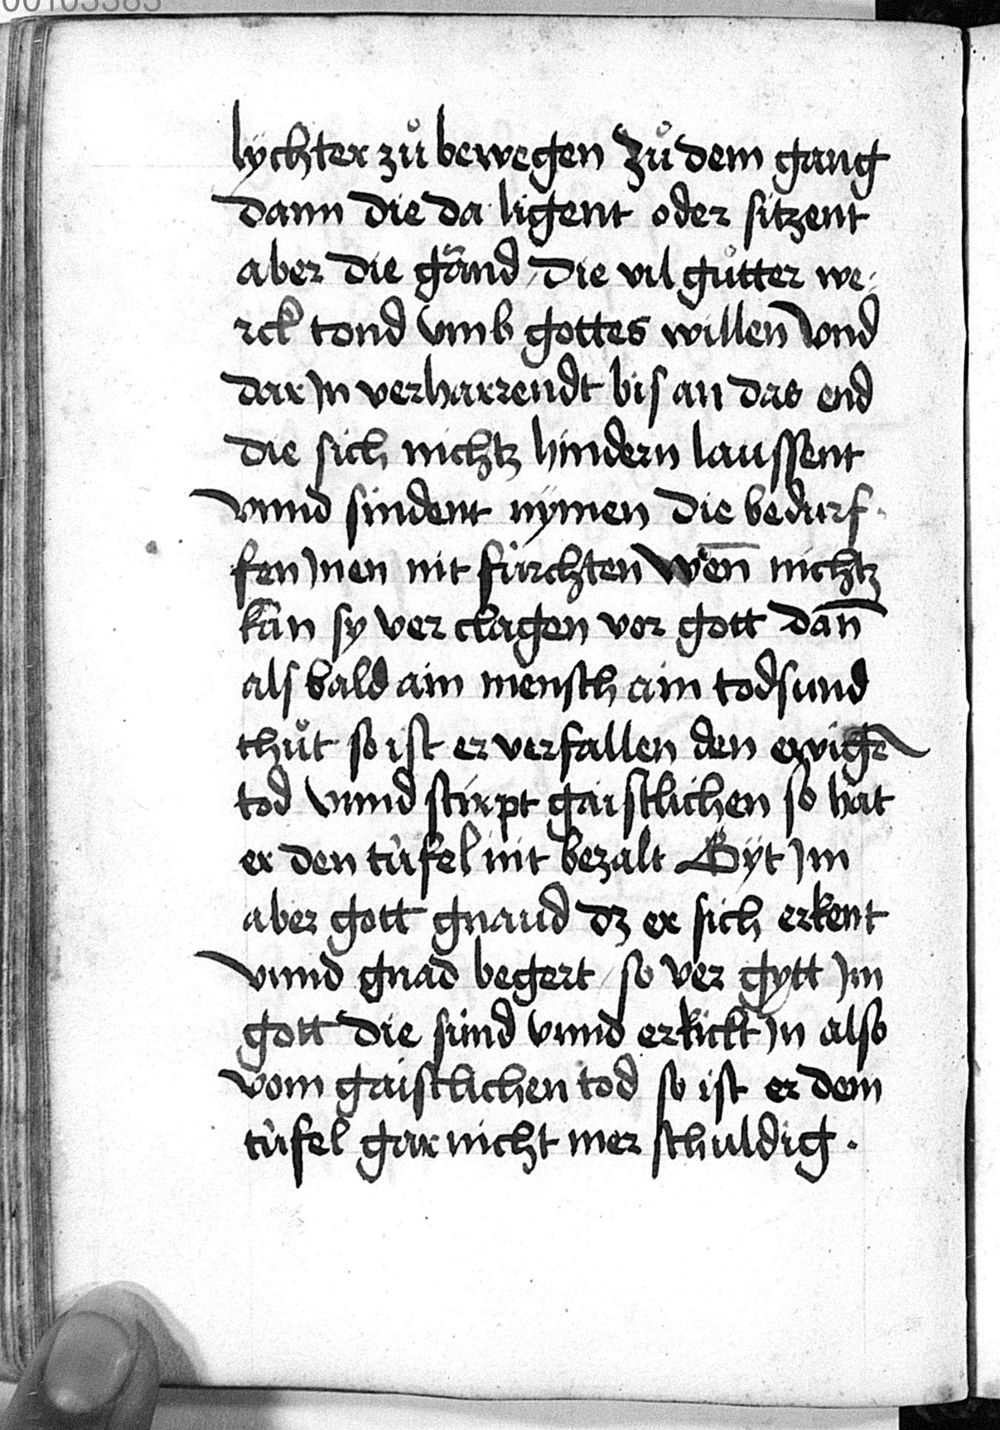 lychter zuͦ bewegen Zuͦ dem gang
dann die da ligent oder sitzent
aber die gänd / die vil guͦtter we-
rck tond vmb gottes willen vnd
dar jn verharrendt bis an das end
die sich nichtz hindern laussent
vnnd sindent nÿmen die bedurf-
fen jnen nit fürchten Wen̅ nichtz
kan sy ver clagen vor gott dan̅
als bald ain mensch ain todsund
thuͦt so ist er verfallen den ewigē
tod vnnd stirpt gaistlichen so hat
er den tüfel nit bezalt Gÿt jm
aber gott gnaud dz er sich erkent
vnnd gnad begert / so ver gytt jm
gott die sünd vnnd erkickt jn also
vom gaistlichen tod so ist er dem
tüfel gar nicht mer schuldig .